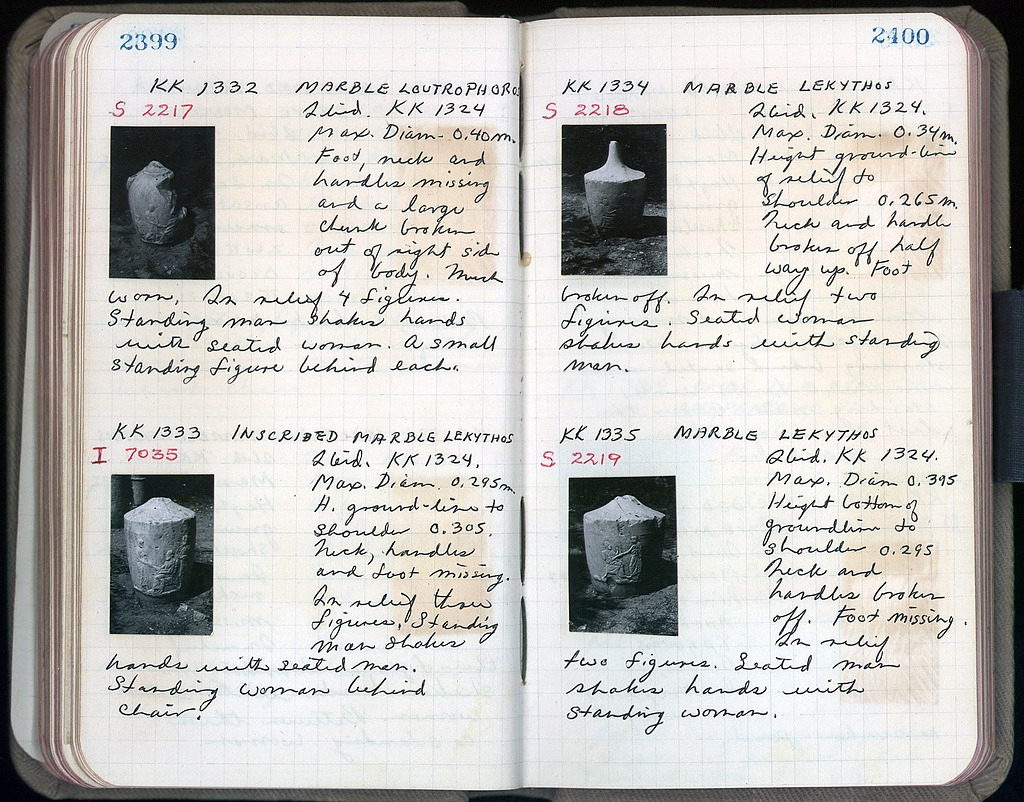 2399
KK 1332 MARBLE LOUTROPHOROS
S 2217 Ibid. KK 1324
Max. Diam. 0.40m.
Foot, neck and
handles missing
and a large
chunk broken
out of right side
of body. Much
worn. In relief 4 figures.
Standing man shakes hands
with seated woman. A small
standing figure behind each.
KK 1333 INSCRIBED MARBLE LEKYTHOS
I 7035 Ibid. KK 1324.
Max. Diam. 0.295m.
H. ground-line to
shoulder 0.305.
Neck, handles
and foot missing.
In relief three
figures. Standing
man shakes
hands with seated man.
Standing woman behind
chair.
2400
KK 1334 MARBLE LEKYTHOS
S 2218 Ibid. KK 1324.
Max. Diam. 0.34m.
Height ground-line
of relief to
shoulder 0.265m.
Neck and handle
broken off half
way up. Foot
broken off. In relief two
figures. Seated woman
shakes hands with standing
man.
KK 1335 MARBLE LEKYTHOS
S 2219 Ibid. KK 1324.
Max. Diam 0.395
Height bottom of
groundline to
shoulder 0.295
Neck and
handles broken
off. Foot missing.
In relief
two figures. Seated man
shakes hands with
standing woman.